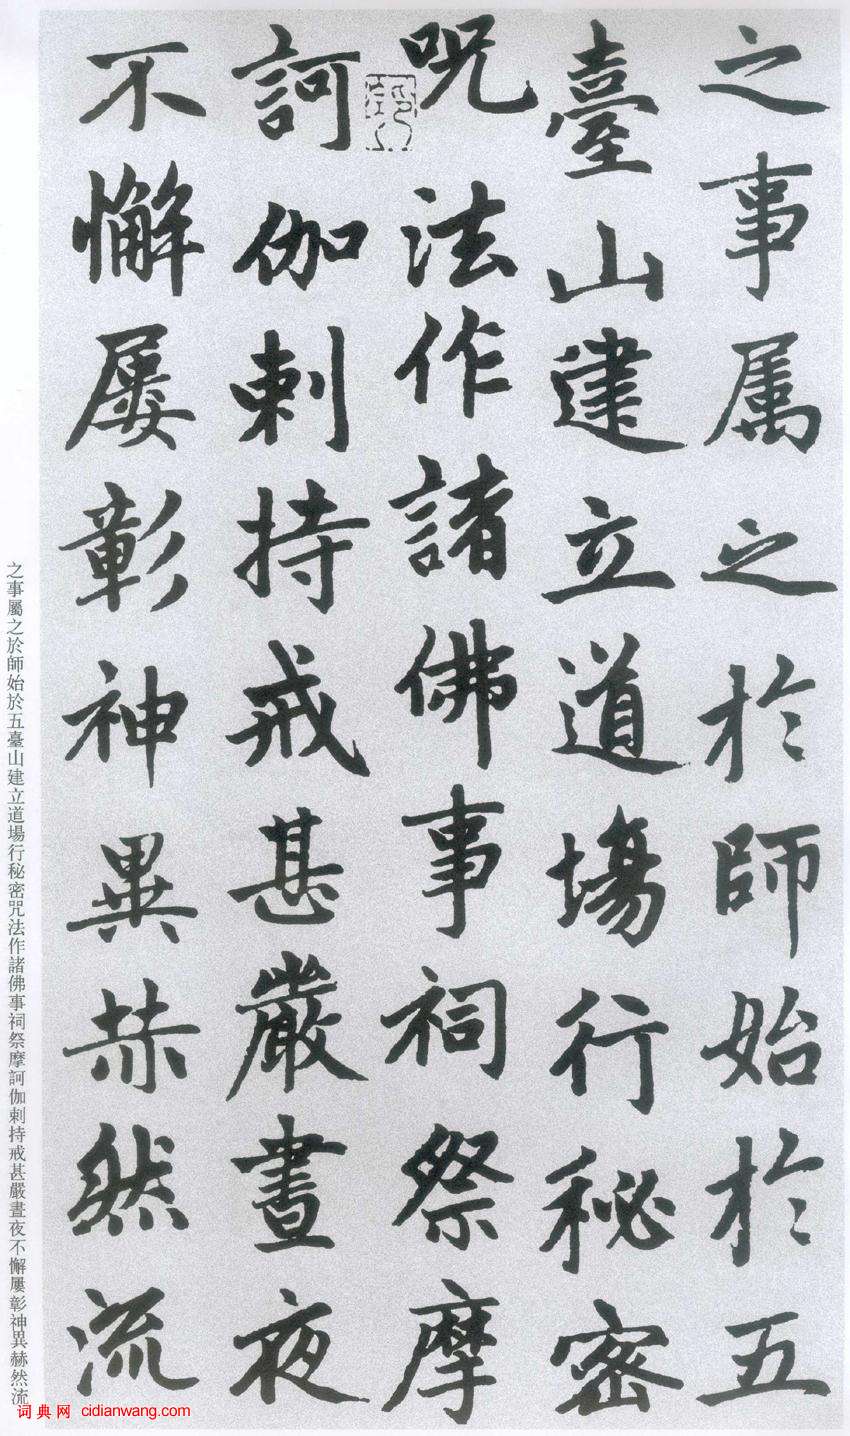 之事属之於師始於五
臺山建立道場行秘密
呪法作諸佛事祠祭摩
訶伽剌持戒甚嚴晝夜
不懈屢彰神異赫然流
之事屬之於師始於五臺山建立道場行秘密咒法作諸佛事祠祭摩訶伽剌持戒甚嚴晝夜不懈屢彰神異赫然流
词典网 cidianwang.com